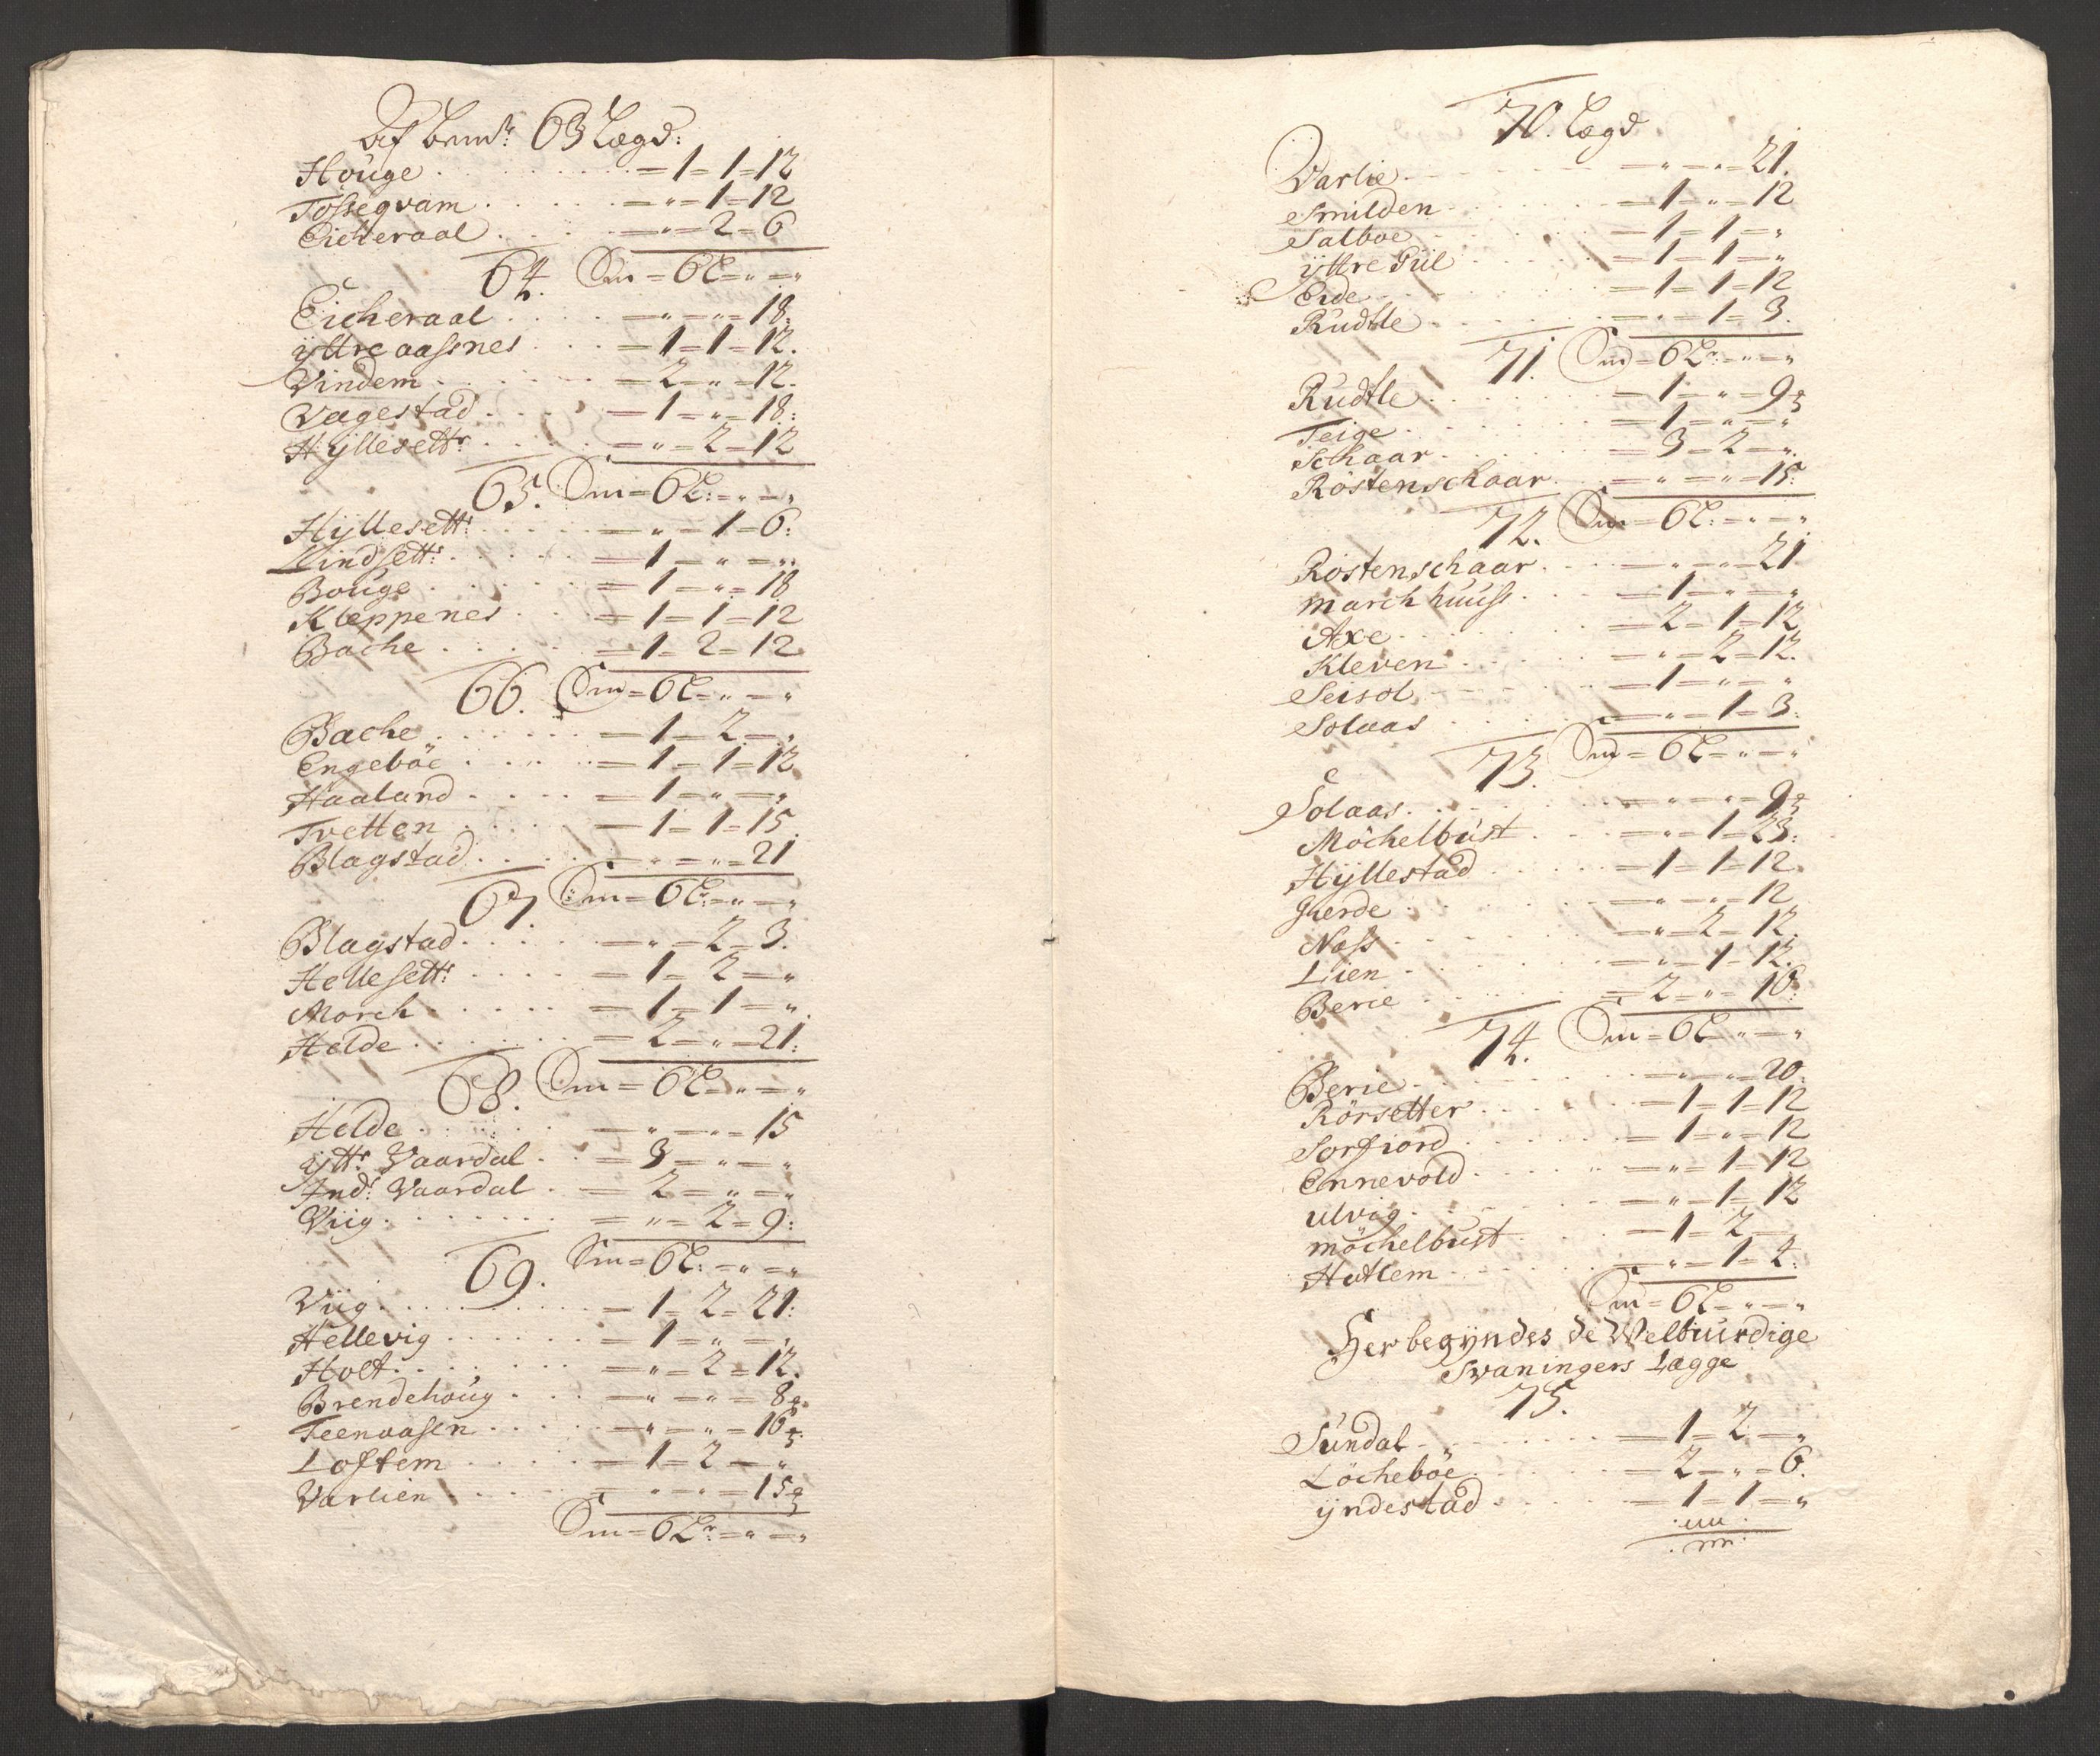 Af bem.te 63 Lægd:
Houge . . . . . . . = 1 = 1 = 12
Tössegvam . . . . . = " = 1 = 12
Eicheraal . . . . = " = 2 = 6
64. Sm = 6 L = " = "
Eicheraal . . . . = " = " = 18:
ÿttre aassnes . . . = 1 = 1 = 12.
Vindem . . . . . . = 2 = " = 12.
Vagestad . . . . = 1 = " = 18:
Hÿllesettr . . . . . = " = 2 = 12
65. Sm = 6 L: = " = "
Hÿllesettr . . . . . = " = 1 = 6:
Lindsettr . . . . . = 1 = " = "
Bouge . . . . . = 1 = " = 18
Kleppenes . . . . = 1 = 1 = 12
Bache . . . . . = 1 = 2 = 12
66. Sm = 6 L = " = "
Bache . . . . . . = 1 = 2 = "
Engeböe . . . . . = 1 = 1 = 12
Haaland . . . . = 1 = " = "
Tvetten . . . . = 1 = 1 = 15.
Blagstad . . . . = " = " = 21
67 Sm = 6 L: = " = "
Blagstad . . . . = " = 2 = 3.
Hellesettr . . . . = 1 = 2 = "
Morch . . . . . = 1 = 1 = "
Helde . . . . . . = 2 = " = 21:
68. Sm = 6 L = " = "
Helde . . . . . . = " = " = 15
ÿttr Vaardal . . = 3 = " = "
Indr Vaardal . = 2 = " = "
Viig . . . . . . . = " = 2 = 9:
69. Sm = 6 L: = " = "
Viig . . . . . . . = 1 = 2 = 21:
Hellevig . . . . . = 1 = " = "
Holt . . . . . . = " = 2 = 12.
Brendehoug . . . = " = " = 8
Teenaasen . . . . = " = " = 16
Loftem . . . . . = 1 = 2 = "
Varlien . . . . . = " = " = 15
Sm = 6 Lr = " = "
70. Lægd
Varlie . . . . . . = " = " = 21.
Smilden . . . . . = 1 = " = 12
Salboe . . . . . = 1 = 1 = "
ÿttre Giil . . . . = 1 = 1 = "
Eide . . . . . . = 1 = 1 = 12
Rudtle . . . . . = " = 1 = 3.
71. Sm = 6 Lr = " = "
Rudtle . . . . . . = 1 = " = 9
Teige . . . . . . = 1 = " = "
Schaar . . . . . = 3 = 2 = "
Röstenschaar . . = " = " = 15:
72. Sm = 6 L: = " = "
Röstenschaar . . . = " = " = 21
Marchhuuss . . . = 1 = " = "
Axe . . . . . . = 2 = 1 = 12
Kleven . . . . . = " = 2 = 12.
Seisol . . . . . = 1 = " = "
Solaas . . . . . = " = 1 = 3:
73. Sm = 6 L = " = "
Solaas . . . . . . = " = " = 9
Möchelbust . . . = " = 1 = 23:
Hÿllestad . . . . = 1 = 1 = 12.
Gierde . . . . . = " = " = 12
Næss . . . . . . = " = 2 = 12.
Lien . . . . . . = " = 1 = 12.
Berie . . . . . . = 2 = " = 10:
74. Sm = 6 L = " = "
Berie . . . . . . = " = " = 20:
Rörsetter . . . . = 1 = 1 = 12
Sorfiord . . . . = 1 = " = 12
Ennevold . . . . = " = 1 = 12
Ulvig . . . . . . = " = 1 = 12
Möchelbust . . . = 1 = 2 =
Hatlem . . . . . = " = 1 = 4:
Sm = 6 L = " = "
Her begÿndes de Welbiurdige
Svaningers Lægge
75.
Sundal . . . . . . = 1 = 2 = "
Löcheböe . . . . = 2 = " = 6.
ÿndestad . . . . = 1 = 1 = "